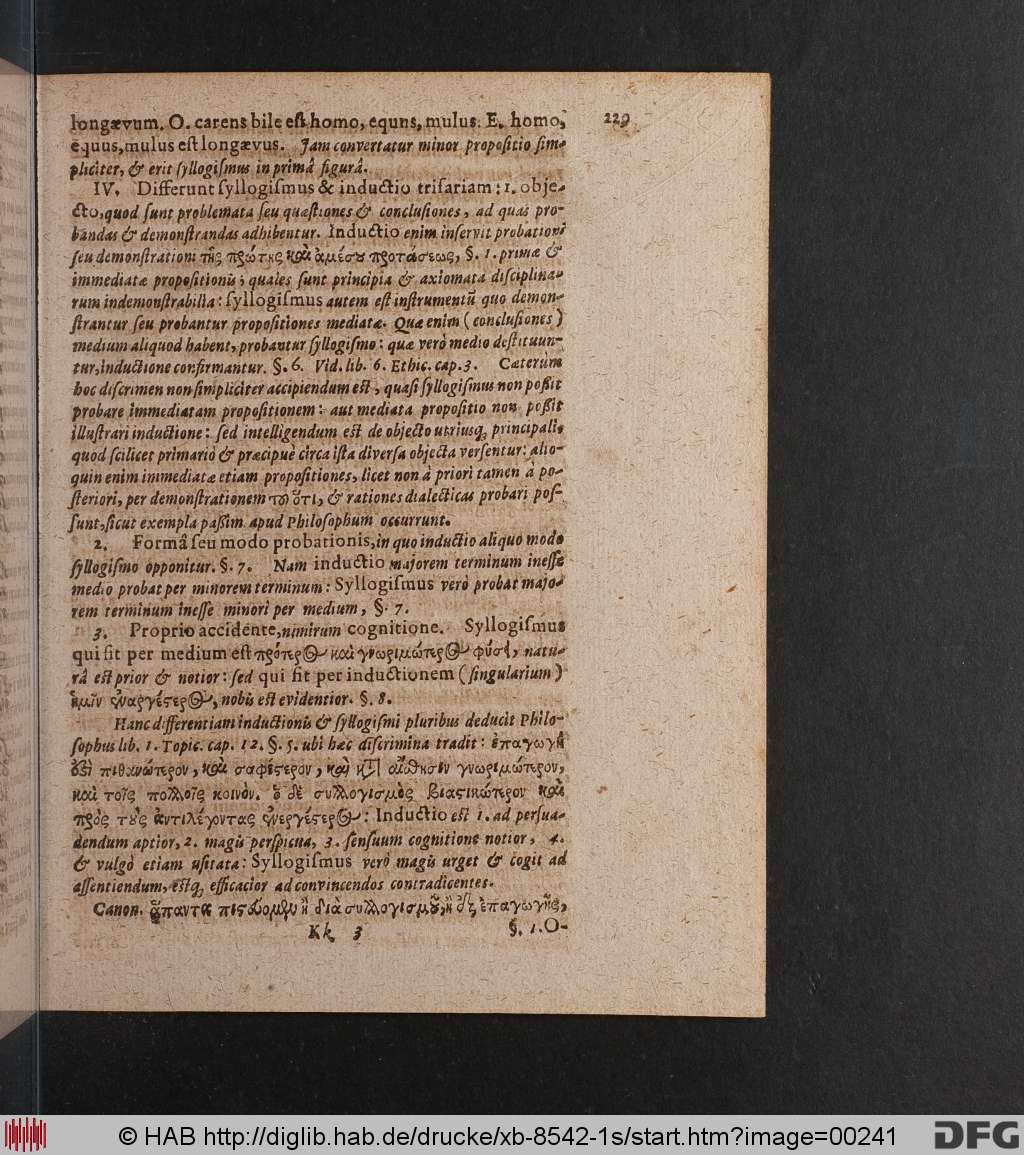 longævum. O. carens bile eſt homo, equns, mulus. E. homo,
229
equus, mulus eſt longævus. Jam convertatur minor propoſitio ſim-
pliciter, & erit ſyllogiſmus in primâ figurâ.
IV. Differunt ſyllogiſmus & inductio trifariam: 1. obje-
cto, quod ſunt problemata ſeu quæſtiones & concluſiones, ad quas pro-
bandas & demonſtrandas adhibentur. Inductio enim inſervit probationi
ſeu demonſtrationi τῆς πρώτης καὶ ἀμέσου προτάσεως, §. 1. primæ &
immediatæ propoſitionis; quales ſunt principia & axiomata diſciplina-
rum indemonſtrabilia: ſyllogiſmus autem eſt inſtrumentũ quo demon-
ſtrantur ſeu probantur propoſitiones mediatæ. Quæ enim (concluſiones)
medium aliquod habent, probantur ſyllogiſmo: quæ verò medio deſtituun-
tur, inductione confirmantur. §. 6. Vid. lib. 6. Ethic. cap. 3. Cæterùm
hoc diſcrimen non ſimpliciter accipiendum eſt, quaſi ſyllogiſmus non poßit
probare immediatam propoſitionem: aut mediata propoſitio non poßit
illuſtrari inductione: ſed intelligendum eſt de objecto utriusq; principali,
quod ſcilicet primariò & præcipuè circa iſta diverſa objecta verſentur: alio-
quin enim immediatæ etiam propoſitiones, licet non à priori tamen à po-
ſteriori, per demonſtrationem τοῦ ὅτι, & rationes dialecticas probari poſ-
ſunt, ſicut exempla paßim apud Philoſophum occurrunt.
2. Formâ ſeu modo probationis, in quo inductio aliquo modo
ſyllogiſmo opponitur. §. 7. Nam inductio majorem terminum ineſſe
medio probat per minorem terminum: Syllogiſmus verò probat majo-
rem terminum ineſſe minori per medium, §. 7.
3. Proprio accidente, nimirum cognitione. Syllogiſmus
qui fit per medium eſt πρότερος καὶ γνωριμώτερος φύσει, natu-
râ eſt prior & notior: ſed qui fit per inductionem (ſingularium)
ἡμῖν ἐναργέστερος, nobis eſt evidentior. §. 8.
Hanc differentiam inductionis & ſyllogiſmi pluribus deducit Philo-
ſophus lib. 1. Topic. cap. 12. §. 5. ubi hæc diſcrimina tradit: ἐπαγωγὴ
ἐστὶ πιθανώτερον, καὶ σαφέστερον, καὶ κτ̃ αἴσθησιν γνωριμώτερον,
καὶ τοῖς πολλοῖς κοινόν. ὁ δὲ συλλογισμὸς βιαστικώτερον καὶ
πρὸς τοὺς ἀντιλέγοντας ἐνεργέστερος: Inductio eſt 1. ad perſua-
dendum aptior, 2. magis perſpicua, 3. ſenſuum cognitione notior, 4.
& vulgò etiam uſitata: Syllogiſmus verò magis urget & cogit ad
aſſentiendum, eſtq; efficacior ad convincendos contradicentes.
Canon. ἅπαντα πιστεύομεν ἢ διὰ συλλογισμοῦ, ἢ ἐξ ἐπαγωγῆς,
Kk 3
§. 1. O-
© HAB http://diglib.hab.de/drucke/xb-8542-1s/start.htm?image=00241
DFG